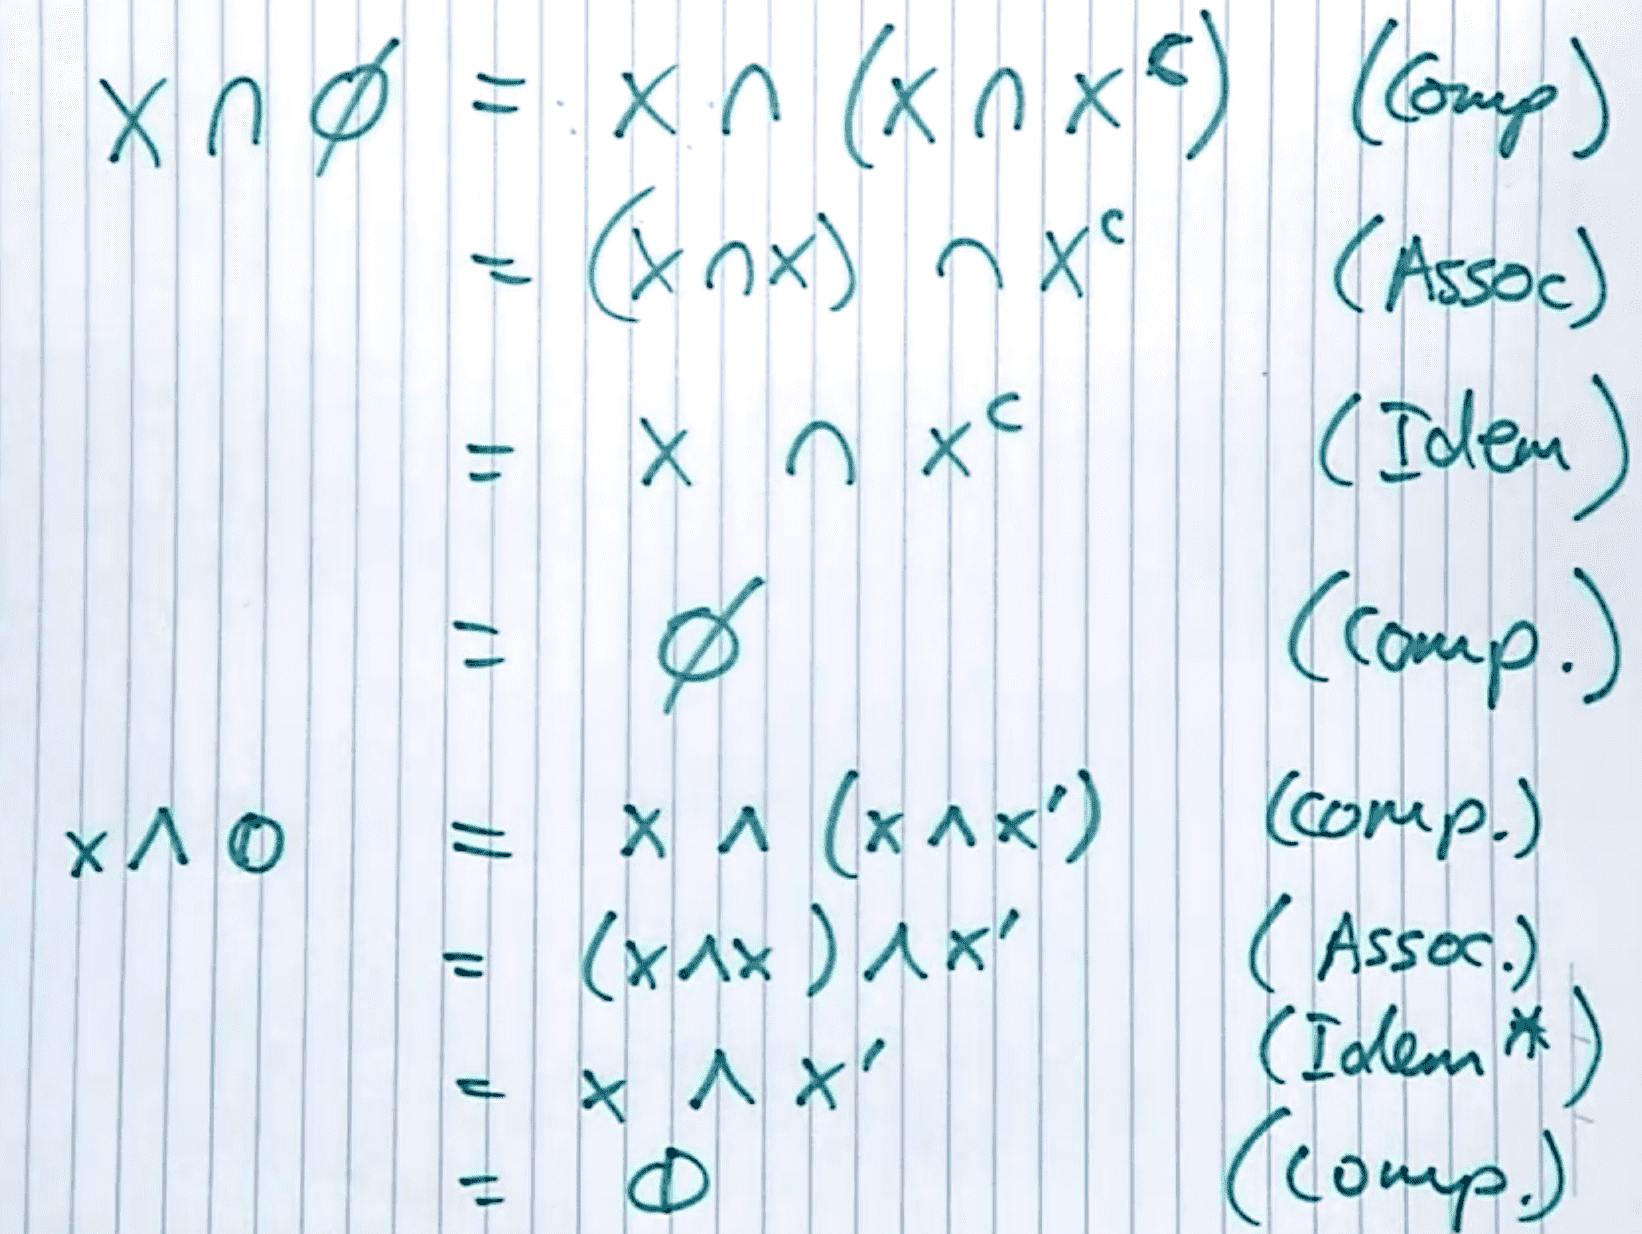 X ∩ ∅ = X ∩ (X ∩ X^c) (Comp)
= (X ∩ X) ∩ X^c (Assoc)
= X ∩ X^c (Idem)
= ∅ (Comp.)
x ∧ 𝟘 = x ∧ (x ∧ x') (Comp.)
= (x ∧ x) ∧ x' (Assoc.)
= x ∧ x' (Idem *)
= 𝟘 (Comp.)